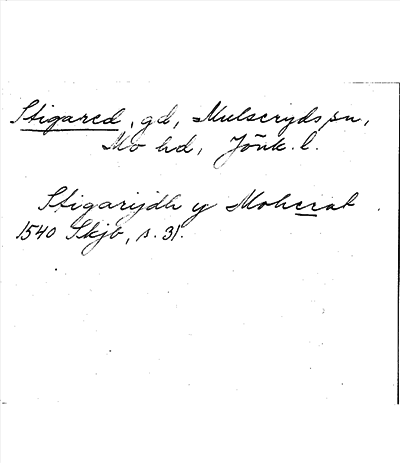 Stigared, gd, Mulseryds sn,
Mo hd, Jönk. l.
Stigarijdh y Moherat.
1540 Skjb, s. 31.